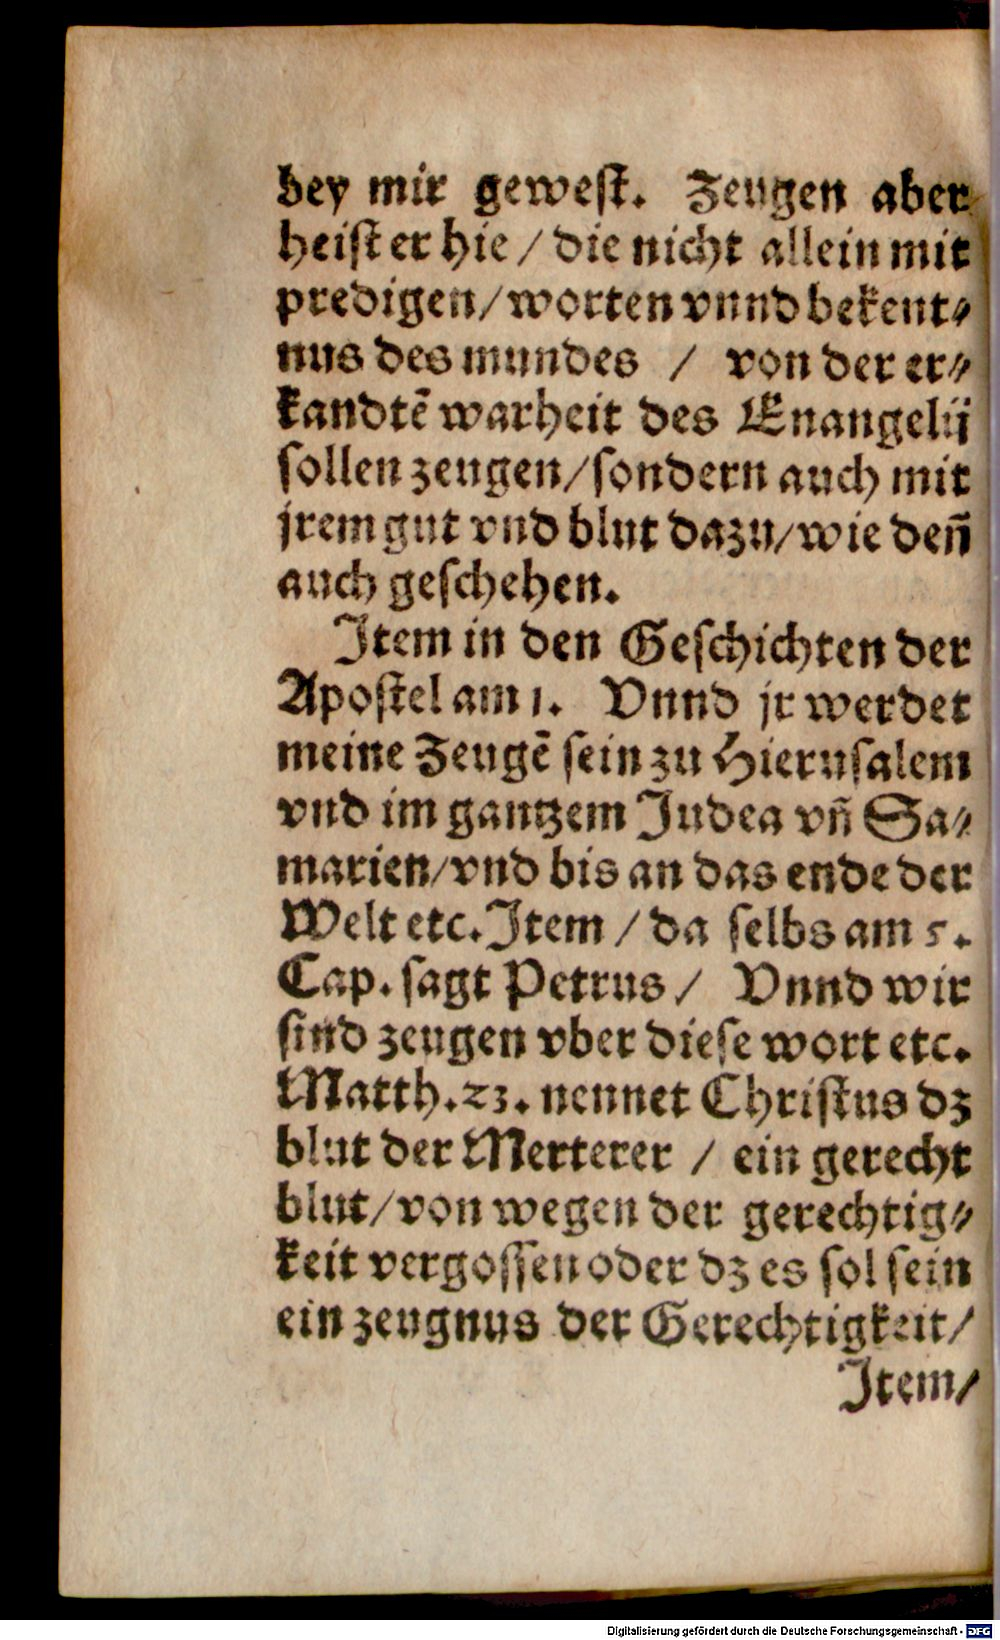 bey mir geweſt. Zeugen aber
heiſt er hie / die nicht allein mit
predigen/ worten vnnd bekent⸗
nus des mundes / von der er⸗
kandtē warheit des Enangelij
ſollen zeugen/ſondern auch mit
jrem gut vnd blut dazu/wie deñ
auch geſchehen.
Item in den Geſchichten der
Apoſtel am 1. Vnnd jr werdet
meine Zeugē ſein zu Hieruſalem
vnd im gantzem Judea vñ Sa⸗
marien/vnd bis an das ende der
Welt etc. Item / da ſelbs am 5.
Cap. ſagt Petrus / Vnnd wir
ſind zeugen vber dieſe wort etc.
Matth. 23. nennet Chriſtus dz
blut der Merterer / ein gerecht
blut/von wegen der gerechtig⸗
keit vergoſſen oder dz es ſol ſein
ein zeugnus der Gerechtigkeit/
Item/
Digitalisierung gefördert durch die Deutsche Forschungsgemeinschaft - DFG